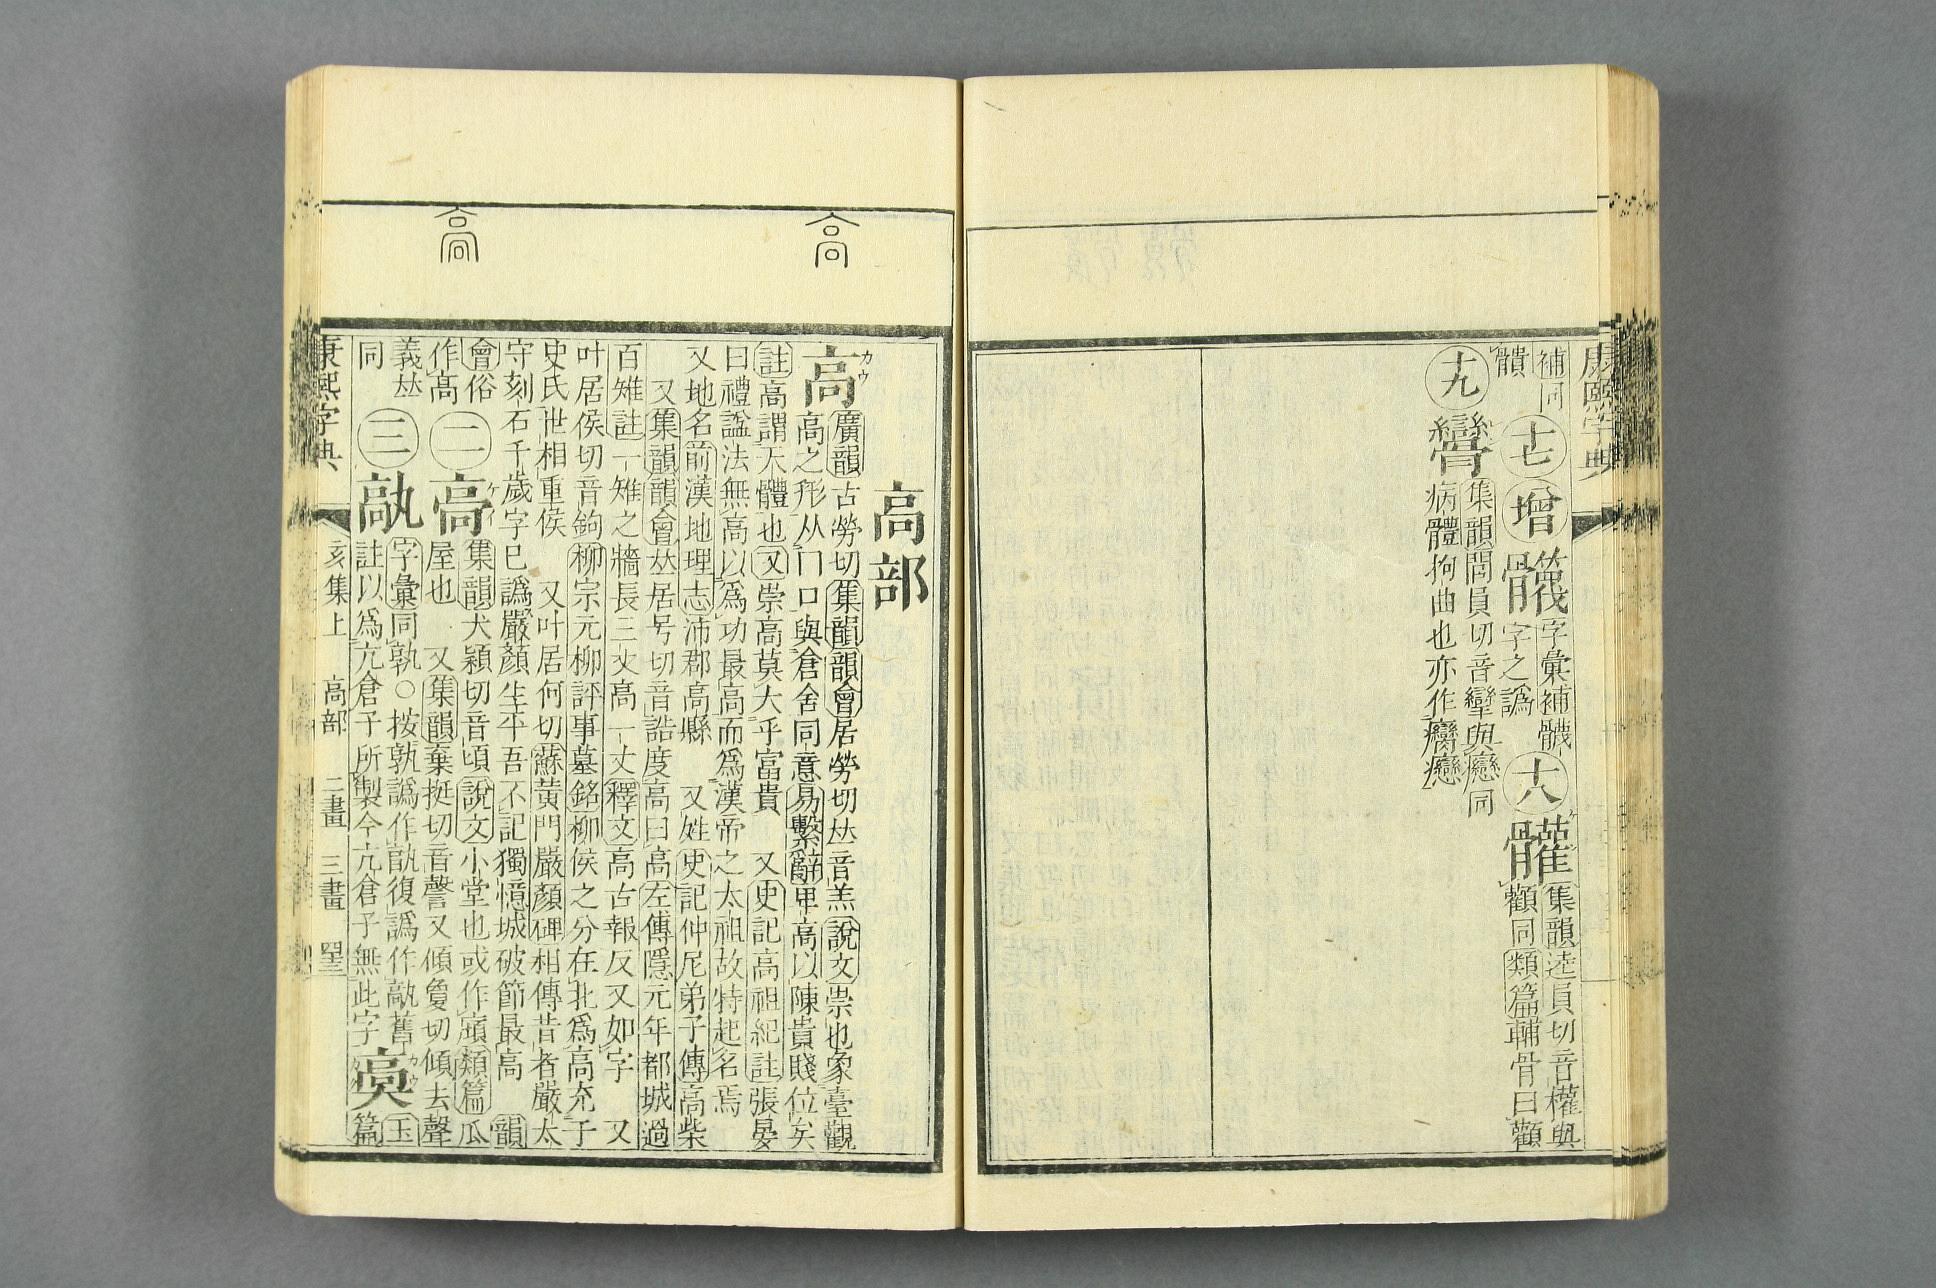 康熙字典
補同
髖
十七
增
字彙補
字之譌
十八
集韻逵員切音權與
顴同類篇輔骨曰顴
十九
集韻閭員切音攣與癴同
病體拘曲也亦作癵癴
高
高
高部
高
カウ
廣韻古勞切集韻韻會居勞切𠀤音羔說文崇也象臺觀
高之形从冂口與倉舍同意易繫辭𤰞高以陳貴賤位矣
註高謂天體也又崇高莫大乎富貴 又史記高祖紀註張晏
曰禮諡法無高以爲功最高而爲漢帝之太祖故特起名焉
又地名前漢地理志沛郡高縣 又姓史記仲尼弟子傳高柴
又集韻韻會𠀤居号切音誥度高曰高左傳隱元年都城過
百雉註一雉之牆長三丈高一丈釋文高古報反又如字 又
叶居侯切音鉤柳宗元柳評事墓銘柳侯之分在北爲高充于
史氏世相重侯 又叶居何切蘇黃門嚴顏碑相傳昔者嚴太
守刻石千歲字已譌嚴顏生平吾不記獨憶城破節最高 韻
會俗
作髙
二
高
ケイ
集韻犬潁切音頃說文小堂也或作廎類篇瓜
屋也 又集韻棄挺切音謦又傾夐切傾去聲
義𠀤
同
三
字彙同孰○按孰譌作𩫞復譌作𩫞舊
註以爲亢倉子所製今亢倉子無此字
カウ
カク
玉
篇
康熙字典
亥集上 高部 二畫 三畫